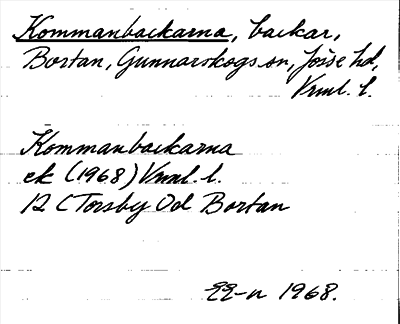 Kommanbackarna, backar,
Bortan, Gunnarskogs sn, Jösse hd,
Vrml. l.
Kommanbackarna
ek (1968) Vrml. l.
12 C Torsby Od Bortan
1968.